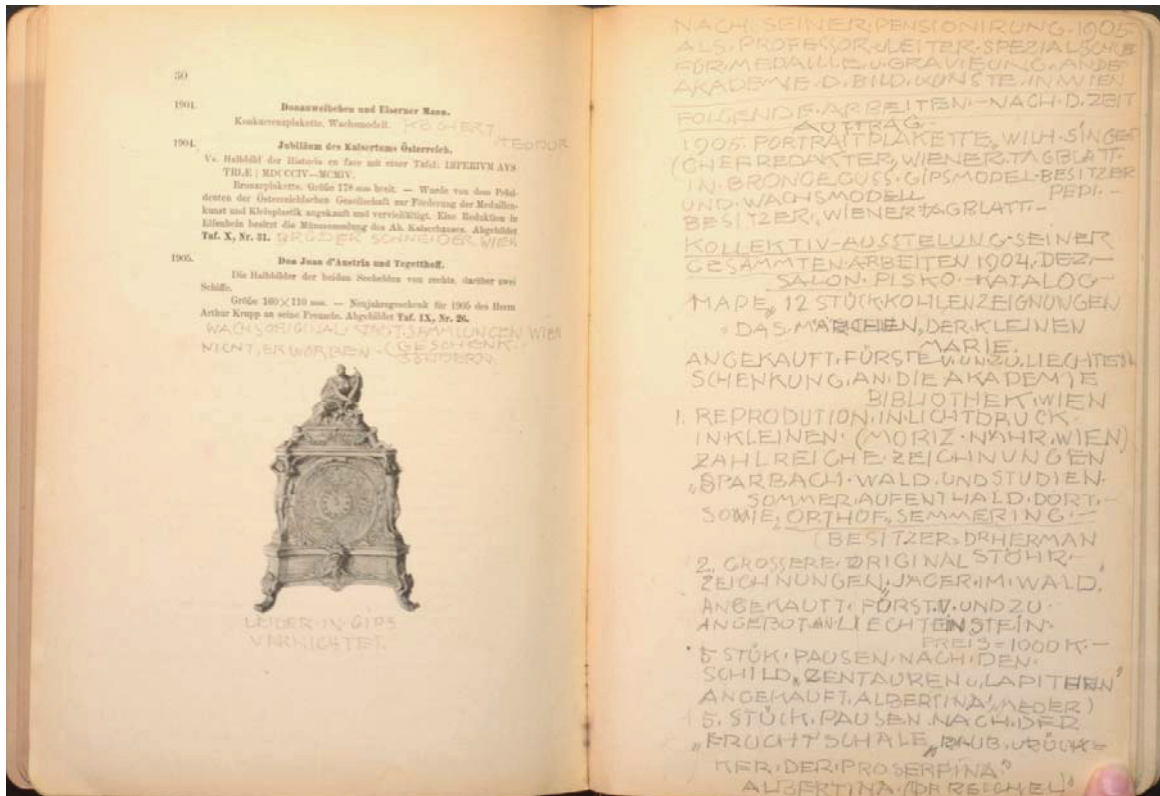 50
1904. Donauweibchen und Eiserner Mann.
Konkurrenzplakette. Wachsmodell. KÖCHERT
TEODOR
1904. Jubiläum des Kaisertums Österreich.
Vs. Halbbild der Historia en face mit einer Tafel: IMPERIVM AVS
TRIÆ | MDCCCIV—MCMIV.
Bronzeplakette. Größe 178 mm breit. — Wurde von dem Präsi-
denten der Österreichischen Gesellschaft zur Förderung der Medaillen-
kunst und Kleinplastik angekauft und vervielfältigt. Eine Reduktion in
Elfenbein besitzt die Münzsammlung des Ah. Kaiserhauses. Abgebildet
Taf. X, Nr. 31. BRÜDER SCHNEIDER WIEN
1905. Don Juan d'Austria und Tegetthoff.
Die Halbbilder der beiden Seehelden von rechts, darüber zwei
Schiffe.
Größe 160×110 mm. — Neujahrsgeschenk für 1905 des Herrn
Arthur Krupp an seine Freunde. Abgebildet Taf. IX, Nr. 26.
WACHSORIGINAL STADTSAMMLUNGEN WIEN
NICHT, ERWORBEN - (GESCHENK -
LEIDER IN GIPS
VERNICHTET.
NACH. SEINER. PENSIONIRUNG. 1905
ALS. PROFESSOR. U. LEITER. SPEZIALSCHULE
FÜR. MEDAILLE. U. GRAVIEUNG. AN DER
AKADEMIE. D. BILD. KÜNSTE. IN WIEN
FOLGENDE. ARBEITEN. - NACH. D. ZEIT
AUFTRAG -
1905. PORTRAITPLAKETTE, WILH. SINGER
(CHEFREDAKTER, WIENER. TAGBLATT.
IN. BRONCEGUSS. GIPSMODEL. BESITZER
UND. WACHSMODELL PEPI. -
BESITZER, WIENER TAGBLATT. -
KOLLEKTIV-AUSSTELUNG. SEINER
GESAMMTEN. ARBEITEN 1904. DEZ. -
SALON. PISKO. KATALOG -
MAPE „ 12 STÜCK KOHLENZEIGNUNGEN
„ DAS. MÄRCHEN, DER. KLEINEN
MARIE.
ANGEKAUFT. FÜRST. V. UN. ZU. LIECHTEN
SCHENKUNG. AN. DIE AKADEMIE
BIBLIOTHEK. WIEN
1. REPRODUTION. IN. LICHTDRUCK.
IN. KLEINEN. (MORIZ. NÄHR. WIEN)
ZAHLREICHE. ZEICHNUNGEN
„SPARBACH. WALD. UND STUDIEN.
SOMMER. AUFENTHALD. DORT. -
SOWIE „ ORTHOF „ SEMMERING. -
(BESITZER. DR HERMAN
STÖHR. -
2. GRÖSSERE. ORIGINAL
ZEICHNUNGEN. JÄGER. IM. WALD.
ANGEKAUTT. FÖRST. V. UND ZU.
ANGEBOT. AN. LIECHTENSTEIN.
PREIS = 1000 K. -
5 STÜK. PAUSEN. NACH. DEN.
SCHILD „ ZENTAUREN u. LAPITHEN"
ANGEKAUFT. ALBERTINA (MEDER)
5. STÜCK. PAUSEN. NACH. DER
„FRUCHTSCHALE „ RAUB. U. RÜCK=
KER. DER. PROSERPINA"
ALBERTINA. (DR REICHEL)